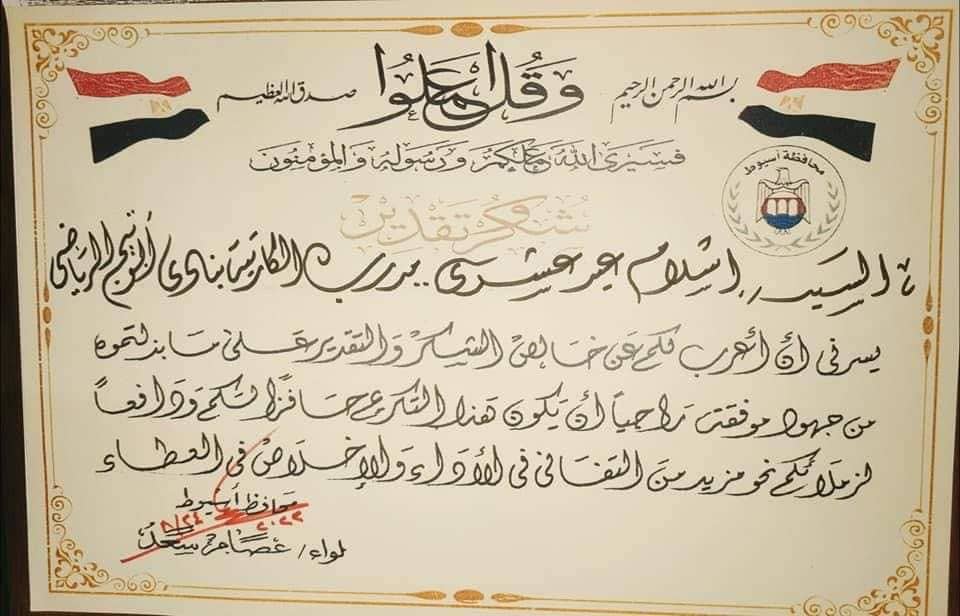 بسم الله الرحمن الرحيم
وقل اعملوا
صدق الله العظيم
فسيرى الله عملكم ورسوله والمؤمنون
محافظة أسيوط
شكر وتقدير
السيد / إسلام عيد عشرى .. مدرب الكاراتيه بنادى أبوتيج الرياضى
يسرنى أن أعرب لكم عن خالص الشكر والتقدير على ما بذلتموه
من جهود موفقة راجياً أن يكون هذا التكريم حافزاً لكم ودافعاً
لزملائكم نحو مزيد من التفانى فى الأداء والإخلاص فى العطاء
محافظ أسيوط
٨/٢٤
٢٠٢٢
لواء / عصام سعد